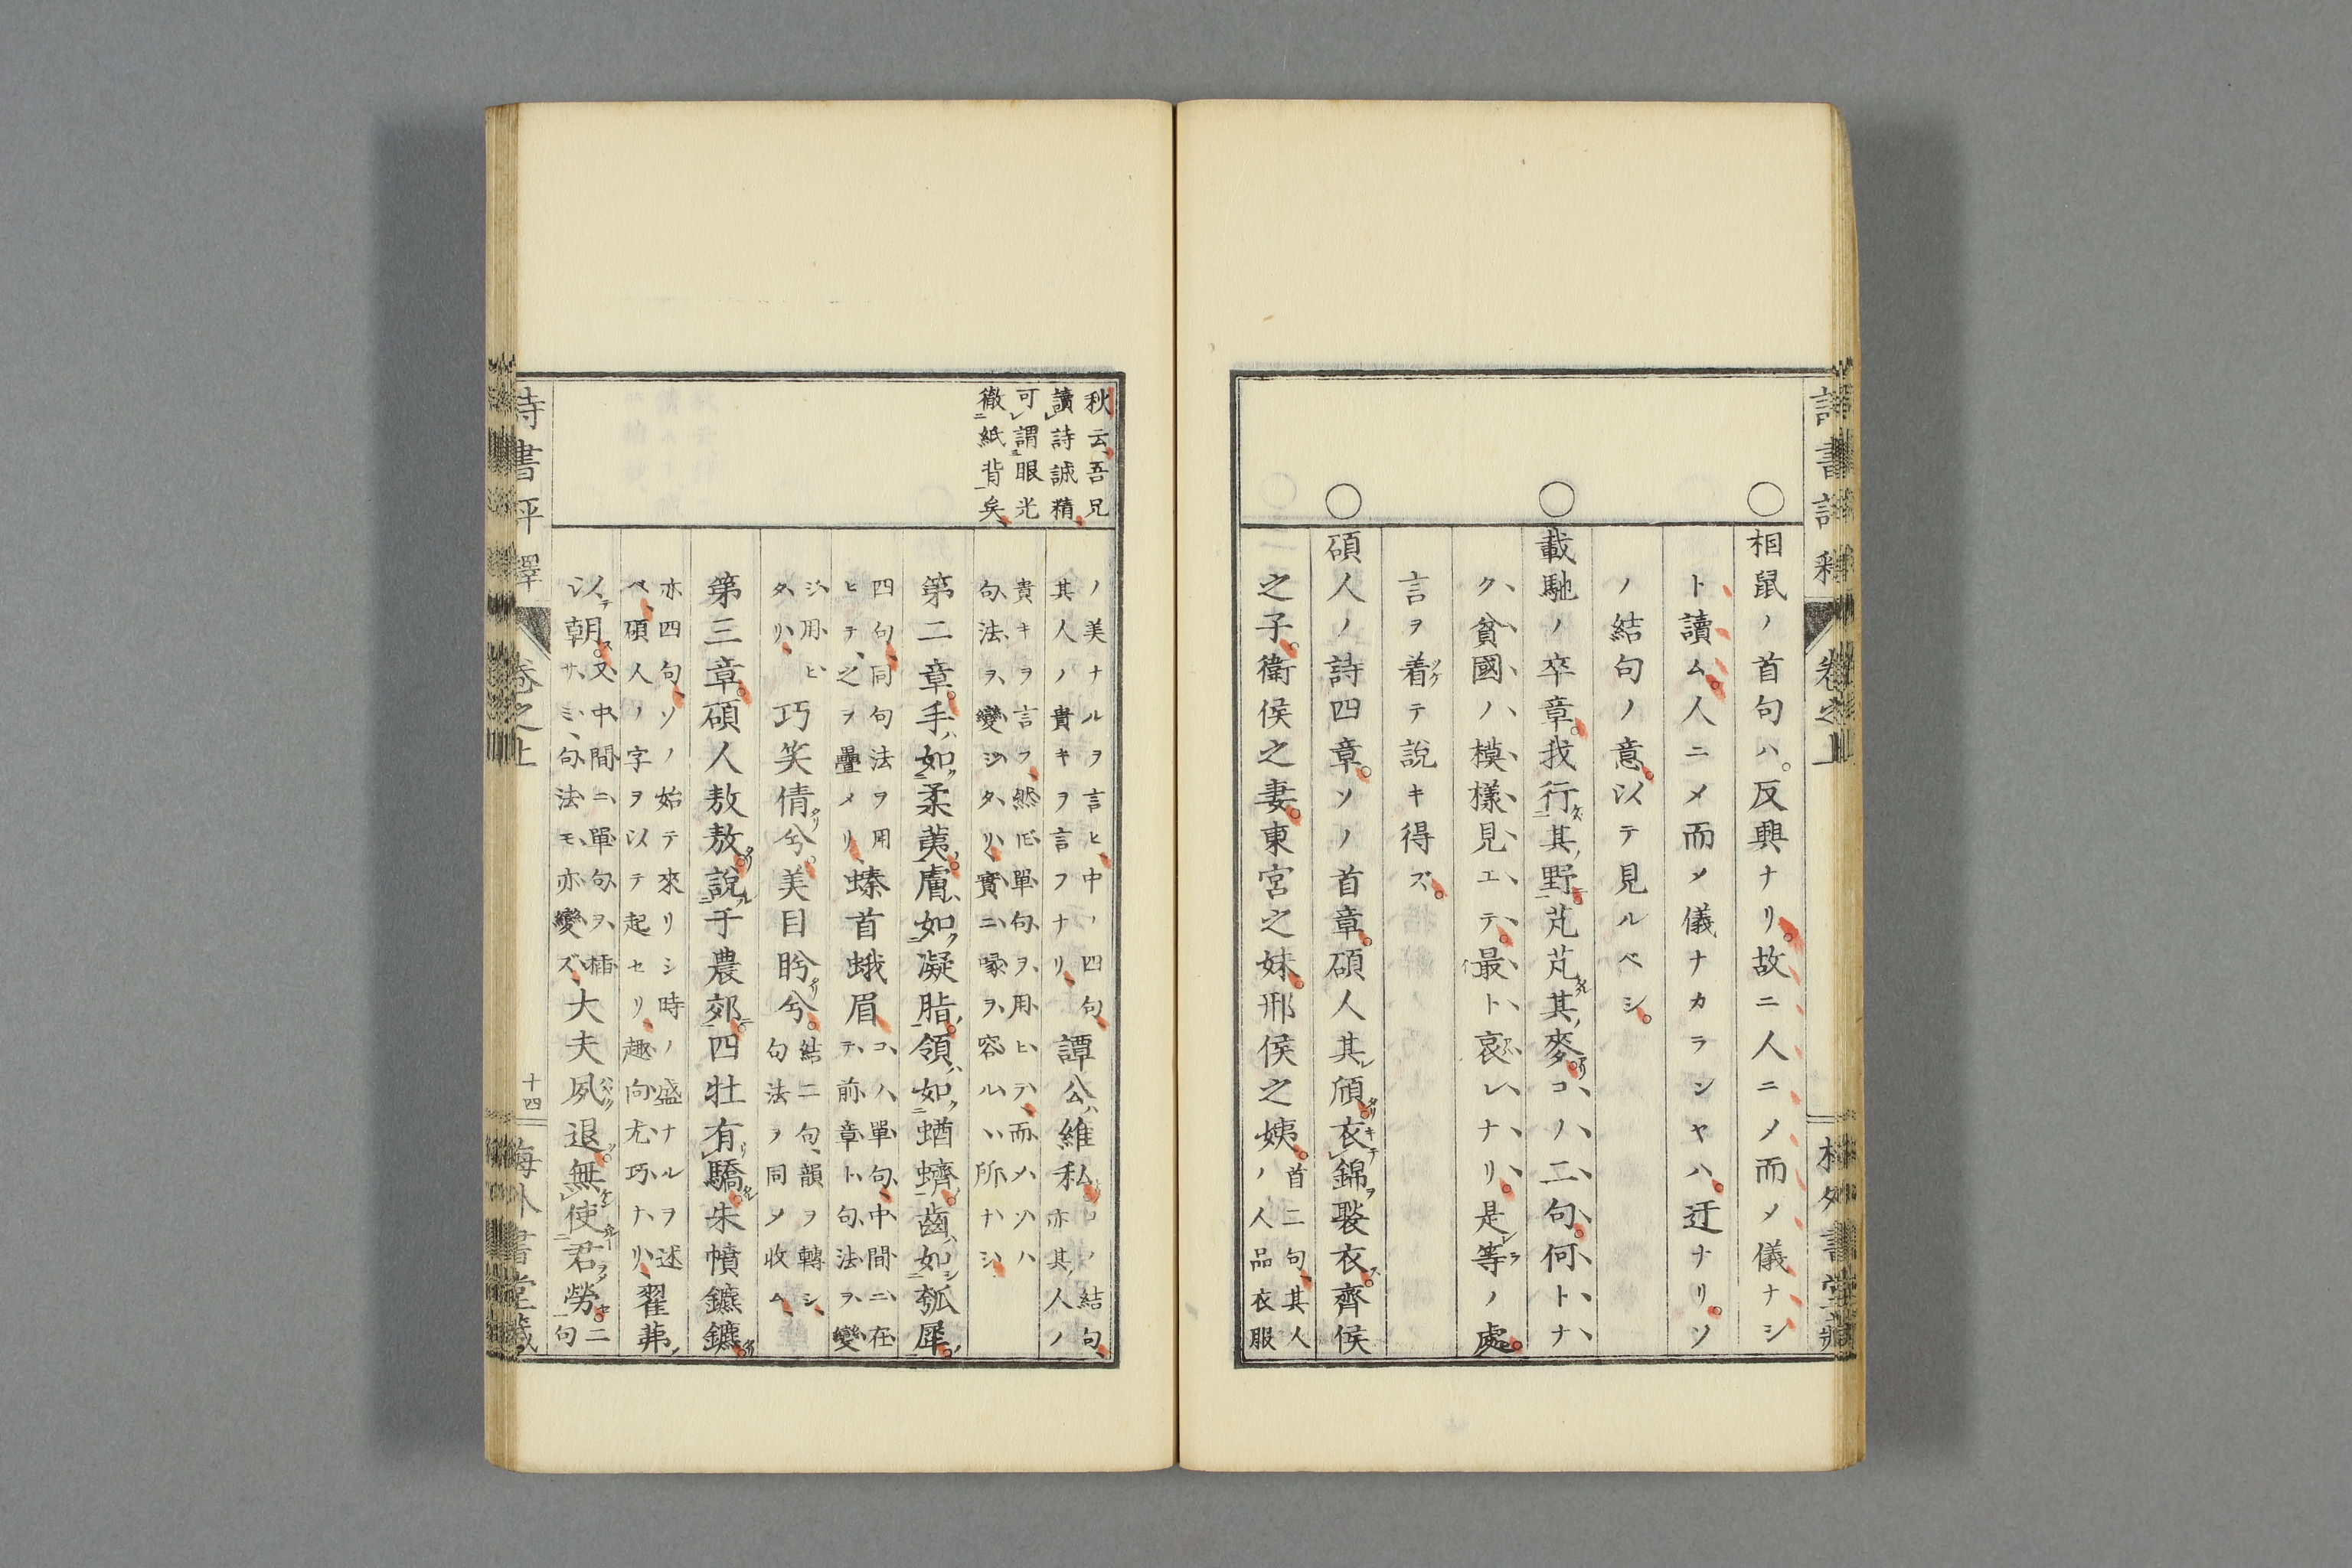 相鼠ノ首句ハ。反興ナリ。故ニ人ニメ而メ儀ナシ
ト讀ム。人ニメ而メ儀ナカラシヤハ。迂ナリ。ソ
ノ結句ノ意。以テ見ルベシ。
載馳ノ卒章。我行其野。芃芃其麥。コノ二句。何トナ
ク貧國ノ模樣見エテ。最ト哀レナリ。是等ノ處。
言ヲ着テ說キ得ズ。
碩人ノ詩四章。ソノ首章。碩人其頎。衣錦褧衣。齊侯
之子。衛侯之妻。東宮之妹。邢侯之姨。首二句、其人
ノ人品衣服
秋云、吾兄
讀詩誠精、
可謂眼光
徹紙背矣、
ノ美ナルヲ言ヒ、中ノ四句、
其人ノ貴キヲ言フナリ、
譚公維私、コノ結句、
亦其人ノ
貴キヲ言フ、然ㇾ𪜈單句ヲ用ヒテ、而ハソハ
句法ヲ變ジタリ、實ニ喙ヲ容ルヽ所ナシ、
第二章。手如柔荑。膚如凝脂。領如蝤蠐。齒如瓠犀。
四句、同句法ヲ用
ヒテ、之ヲ疊メリ、
螓首蛾眉
コハ單句、中間ニ在
テ、前章ト句法ヲ變
ジ用ヒ
タリ、
巧笑倩兮。美目盼兮。
結二句、韻ヲ轉シ、
句法ヲ同メ收ム、
第三章。碩人敖敖。說于農郊。四牡有驕。朱幩鑣鑣。
亦四句、ソノ始テ來リシ時ノ盛ナルヲ述
ベ、碩人ノ字ヲ以テ起セリ、趣向尤巧ナリ、
翟茀
以朝。
又中間ニ單句ヲ插
サミ、句法モ亦變ズ、
大夫夙退。無使君勞。
二
句
十四